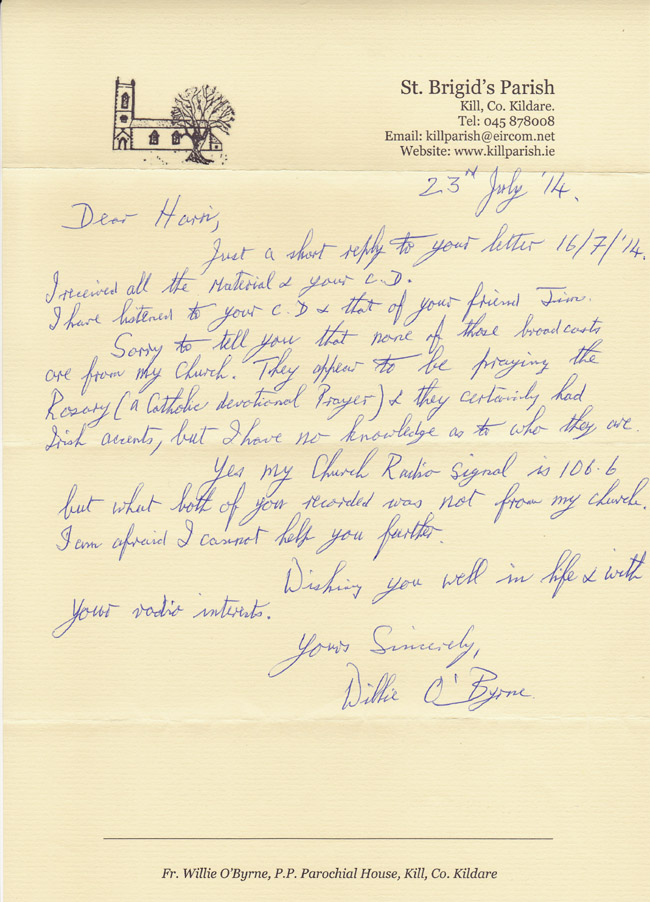 St. Brigid's Parish
Kill, Co. Kildare.
Tel: 045 878008
Email: killparish@eircom.net
Website: www.killparish.ie
23rd July '14.
Dear Harri,
Just a short reply to your letter 16/7/'14.
I received all the material & your C.D.
I have listened to your C.D & that of your friend Jim.
Sorry to tell you that none of those broadcasts
are from my church. They appear to be praying the
Rosary (a Catholic devotional Prayer) & they certainly had
Irish accents, but I have no knowledge as to who they are.
Yes my Church Radio Signal is 106.6
but what both of you recorded was not from my church.
I am afraid I cannot help you further.
Wishing you well in life & with
your radio interests.
Yours Sincerely,
Willie O'Byrne.
Fr. Willie O'Byrne, P.P. Parochial House, Kill, Co. Kildare